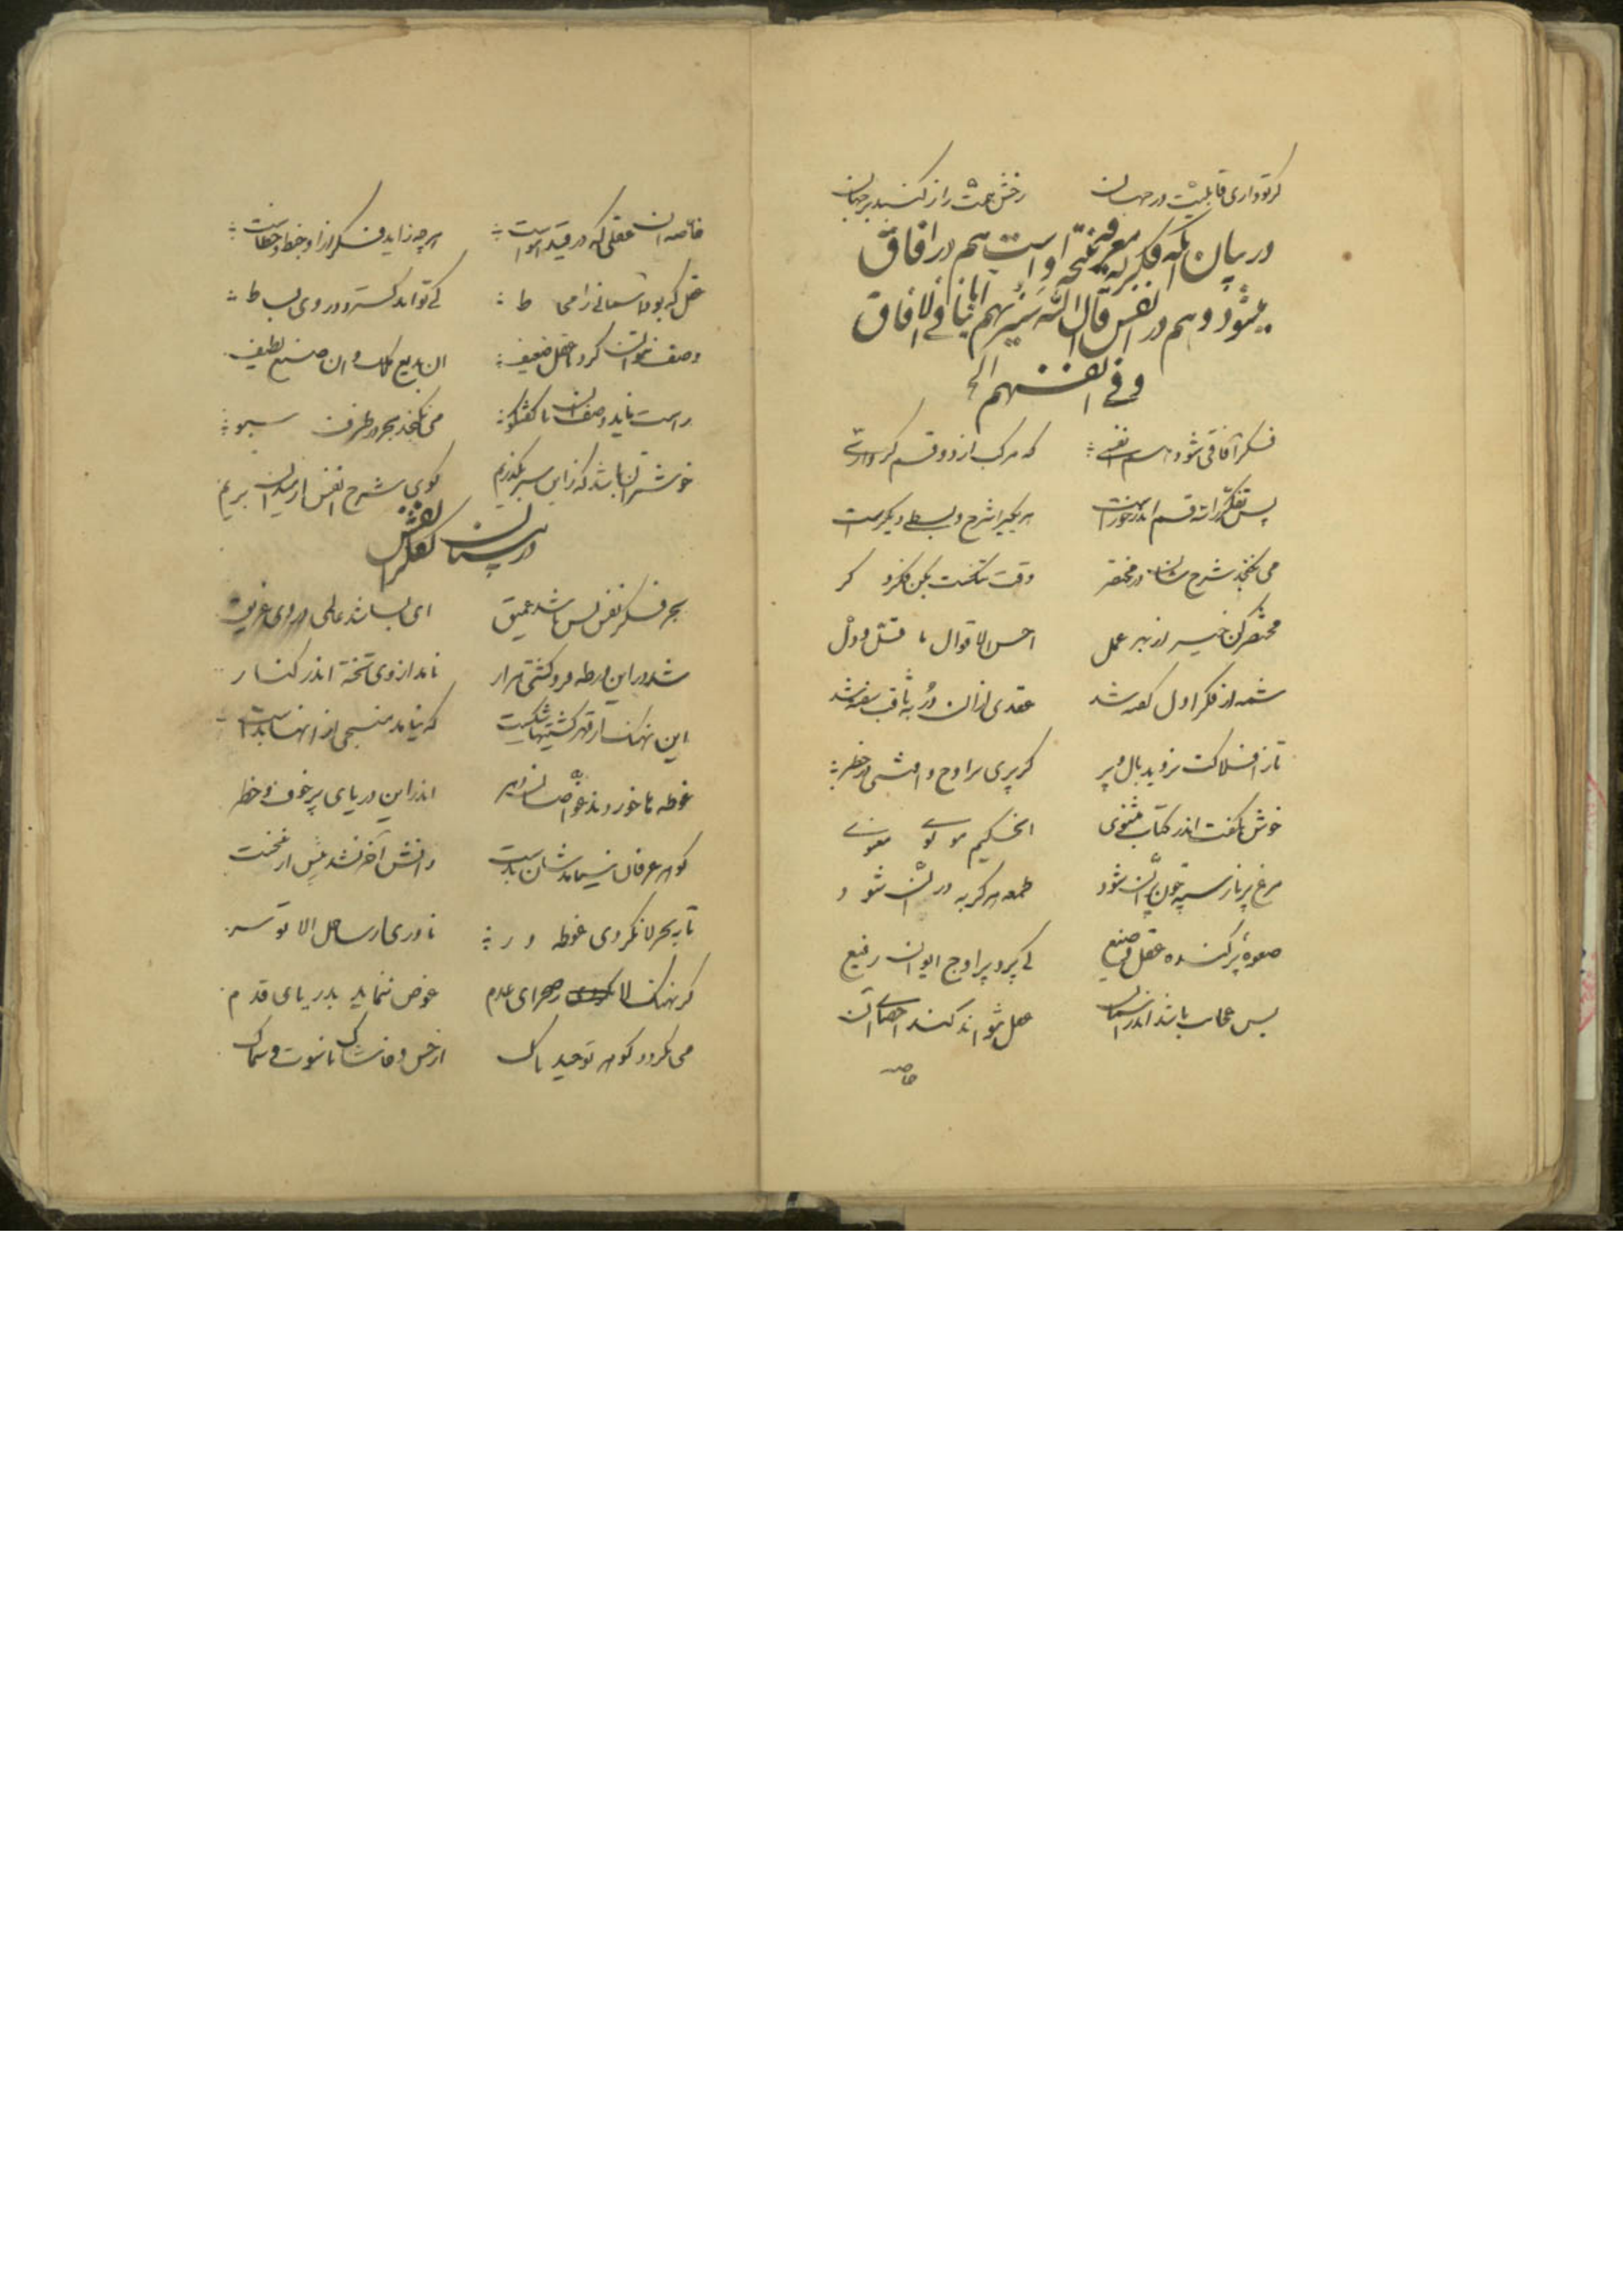 کر تو داری قابلیت در جهان رخش همت را ز کنبد برجهان
در بیان آنکه فکر که معرفة نتیجه او است هم در افاق
میشود و هم در انفس قال الله سنریهم ایاتنا فی الافاق
وفی انفسهم الخ
فکر آفاقی شود هم انفسی که مرکب از دو قسم کر وارسی
پس تفکر را سه قسم اندر خورست هر یکی را شرح و بسطی دیکرست
می نکنجد شرح شان در مختصر وقت تنکست بکن فکر دکر
مختصر کن خیر از بهر عمل احسن الاقوال ما قل و دل
شمه از فکر اول کفته شد عقدی از آن در ثاقب سفته شد
تا ز افلاکت نروید بال و پر کر پری بر اوج وافتی در خطر
خوش بکفت اندر کتاب مثنوی آن حکیم مولوی معنوی
مرغ پر نارسته چون پران شود طعمه هر کربه دران شود
صعوه پر کنده عقل وضیع کی پرد بر اوج ایوان رفیع
بس عجایب باشد اندر آسمان عقل نتواند کند احصای آن
خاصه
خاصه آن عقلی که در قید هواست هر چه زاید فکر از او خبط و خطاست
عقل که بود آسمانی را محاط کی تواند کسترد در وی بساط
وصف نتوان کرد با عقل ضعیف آن بدیع ملک و آن صنع لطیف
راست ناید وصف آن با کفتکو می نکنجد بحر در ظرف سبو
خوشتر آن باشد که زاین سر بکذریم کوی شرح انفس از میدان بریم
در بیان تفکر انفس
بحر فکر نفس بس باشد عمیق ای بسا شد عالمی در وی غریق
شد در این ورطه فرو کشتی هزار نامد از وی تخته اندر کنار
این نهنک از قهر کشتیها شکست که نیامد منجی از آنها بدست
غوطه ها خوردند غواصان دهر اندر این دریای پر خوف و خطر
کوهر عرفان نیامدشان بدست دانش آخر نشد بیش از نخست
تا به بحر لا نکردی غوطه ور ناوری از ساحل الا تو سر
کر نهنک لا ز صحرای عدم غوص ننماید بدریای قدم
می نکردد کوهر توحید پاک از خس و خاشاک ناسوت و سماک